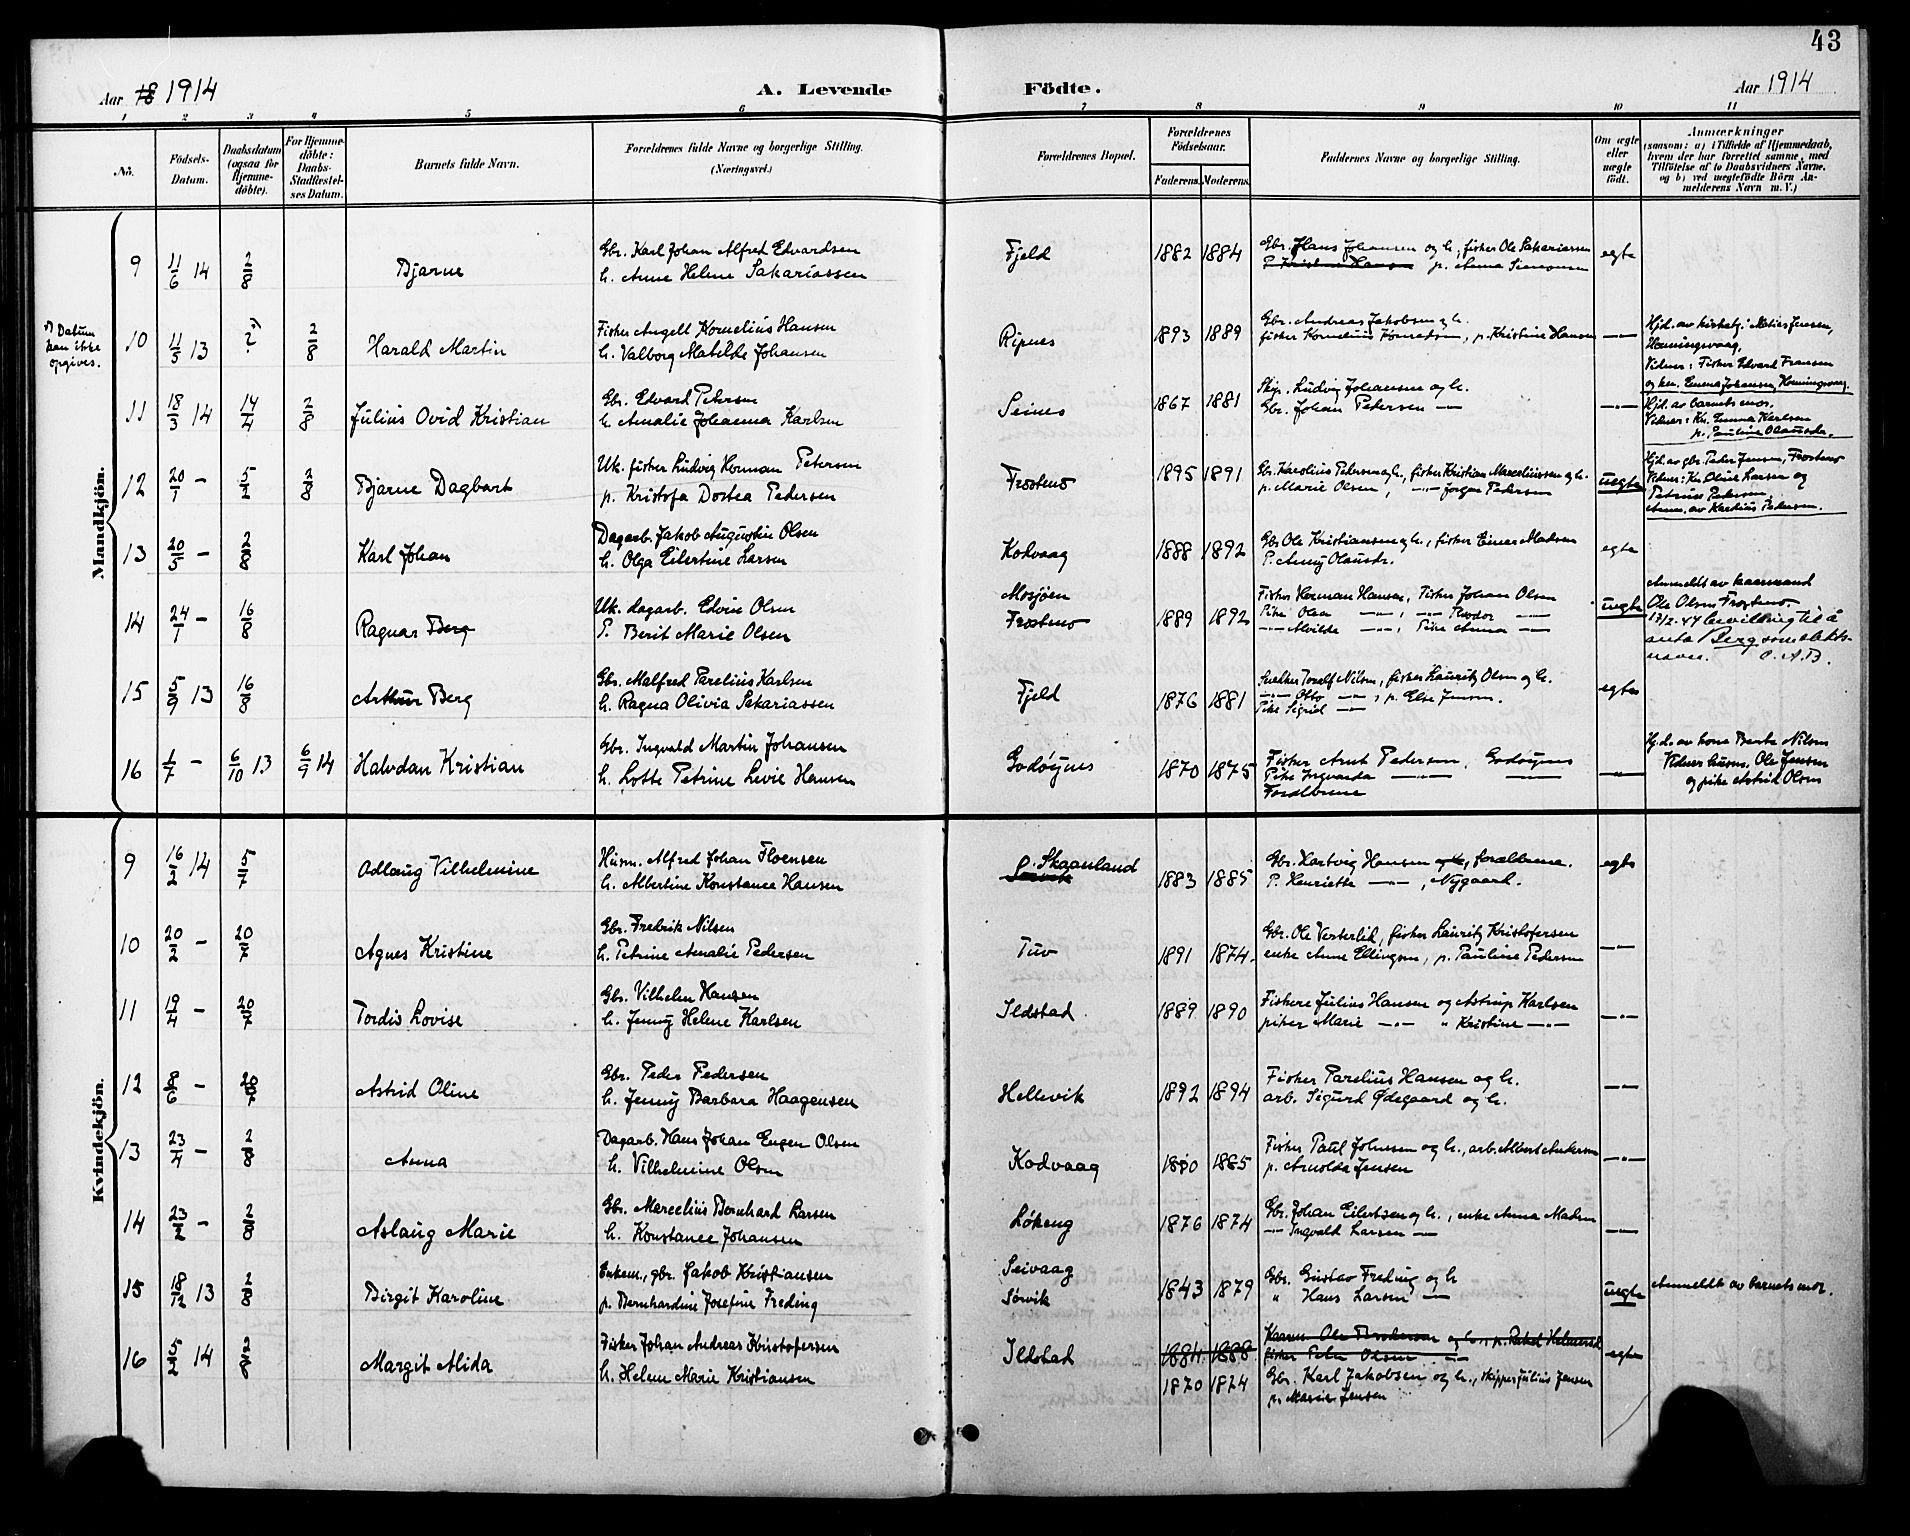 43
Aar 18 1914
A. Levende
Födte.
Aar 1914
1 2 3 4 5 6 7 8 9 10 11
No.
Födsels-Datum.
Daabsdatum (ogsaa for Hjemmedöbte).
For Hjemmedöbte: Daabs-Stadfæstelses Datum.
Barnets fulde Navn.
Forældrenes fulde Navne og borgerlige Stilling.
(Næringsvei.)
Forældrenes Bopæl.
Forældrenes Födselsaar.
Faderens. Moderens.
Faddernes Navne og borgerlige Stilling.
Om ægte eller uægte födt.
Anmærkninger
(saasom: a) i Tilfælde af Hjemmedaab,
hvem der har forrettet samme, med
Tilföielse af to Daabsvidners Navne,
og b) ved uægtefödte Börn An-
melderens Navn m. V.)
Mandkjön.
9 11/6 14 2/8 Bjarne
Gbr. Karl Johan Alfred Edvardsen
h. Anne Helene Sakariassen
Fjeld 1882 1884
Gbr. Hans Johansen og h., fisker Ole Sakariassen
P. Kristine Hansen p. Anna Simonsen
egte
x) Datum
kan ikke
opgives.
10 11/5 13 ? x) 2/8 Harald Martin
Fisker Angell Kornelius Hansen
h. Valborg Matilde Johansen
Ripnes 1893 1889
Gbr. Andreas Jakobsen og h.
fisker Kornelius Konradsen, p. Kristine Hansen
—"—
Hjd. av kirkebtj. Matias Jensen,
Honningsvaag.
Vidner: Fisker Edvard Fransen
og kn. Emma Johansen, Honningsvag.
11 18/3 14 14/4 2/8 Julius Ovid Kristian
Gbr. Edvard Petersen
h. Amalie Johanna Karlsen
Seines 1867 1881
Skip. Ludvig Johansen og h.
Gbr. Johan Pedersen —"—
—"—
Hjd. av barnets mor.
Vidner: Kn. Emma Karlsen
p. Pauline Olausdr.
12 20/1 - 5/2 2/8 Bjarne Dagbart
Uk. fisker Ludvig Herman Petersen
p. Kristofa Dortea Pedersen
Frostmo 1895 1891
Gbr. Karolius Pedersen og h., fisker Kristian Marceliussen og h.
p. Marie Olsen, —"— Jørgen Pedersen
uegte
Hjd. av gbr. Peder Jensen, Frostmo
Vidner: Kn. Oline Larsen og
Petrine Pedersen.
Anm. av Karolius Pedersen.
13 20/5 - 2/8 Karl Johan
Dagarb. Jakob Augustin Olsen
h. Olga Eilertine Larsen
Kodvaag 1888 1892
Gbr. Ole Kristiansen og h., fisker Einar Madsen
P. Anny Olausdr.
egte
14 24/1 - 16/8 Ragnar Berg
Uk. dagarb. Edvin Olsen
P. Berit Marie Olsen
Mosjøen
Frostmo 1889 1892
Fisker Herman Hansen, Fisker Johan Olsen
Pike Olea —"—, —"— Peodor —"—
—"— Alvilde —"—, Pike Anna —"—
uegte
Anmeldt av kaarmand
Ole Olsen Frostmo.
17/2-44 bevilling til å
anta Berg som slekts-
navn. O.A.B.
15 5/9 13 16/8 Arthur Berg
Gbr. Malfred Parelius Karlsen
h. Ragna Olivia Sakariassen
Fjeld 1876 1881
Snekker Toralf Nilsen, fisker Lauritz Olsen og h.
—"— Otto —"—, p. Else Jensen.
Pike Sigrid —"—
egte
16 1/7 - 6/10 13 6/9 14 Halvdan Kristian
Gbr. Ingvald Martin Johansen
h. Lotte Petrine Levie Hansen
Godøynes 1870 1875
Fisker Arnt Pedersen, Godøynes
Pike Ingvarda —"— —"—
Foreldrene
—"—
Hjd. av kone Berte Nilsen
Vidner husm. Ole Jensen
og pike Astrid Olsen
Kvindekjön.
9 16/2 14 5/7 Odlaug Vilhelmine
Husm. Alfred Johan Floensen
h. Albertine Konstance Hansen
Ø. Skaanland
Sørvik 1883 1885
Gbr. Hartvig Hansen og h., foreldrene.
P. Henriette —"—, Nygaard.
egte
10 20/2 - 20/7 Agnes Kristine
Gbr. Fredrik Nilsen
h. Petrine Amalie Pedersen
Tuv 1891 1874.
Gbr. Ole Vesterlid, fisker Lauritz Kristofersen
enke Anne Ellingsen, p. Pauline Pedersen
—"—
11 19/4 - 20/7 Tordis Lovise
Gbr. Vilhelm Hansen
h. Jenny Helene Karlsen
Ildstad 1889 1890
Fiskere Julius Hansen og Astrup Karlsen
piker Marie —"— " Kristine —"—
—"—
12 8/6 - 20/7 Astrid Oline
Gbr. Peder Pedersen
h. Jenny Barbara Haagensen
Hellevik 1892 1894
Fisker Parelius Hansen og h.
arb. Sigurd Ødegaard og h.
—"—
13 23/4 - 2/8 Anna
Dagarb. Hans Johan Eugen Olsen
h. Vilhelmine Olsen
Kodvaag 1880 1885
Fisker Paul Johnsen og h., arb. Albert Andersen
p. Arnolda Jensen
—"—
14 23/2 - 2/8 Aslaug Marie
Gbr. Marcelius Bernhard Larsen
h. Konstance Johansen
Løkeng 1876 1874
Gbr. Johan Eilertsen og h., enke Anna Madsen
—"— Ingvald Larsen —"—
—"—
15 18/12 13 2/8 Birgit Karoline
Enkem., gbr. Jakob Kristiansen
p. Bernhardine Josefine Freding
Seivaag
Sørvik 1843 1879
Gbr. Gustav Freding og h
" Hans Larsen —"—
uegte
Anmeldt av barnets mor.
16 5/2 14 2/8 Margit Alida
Fisker Johan Andreas Kristofersen
h. Helene Marie Kristiansen
Ildstad 1884 1888
Kaarm. Ole Brodersen og h., p. Rakel Helmersd
fisker Peter Olsen —"—
egte
1870 1874
Gbr. Karl Jakobsen og h., skipper Julius Jensen
p. Marie Jensen